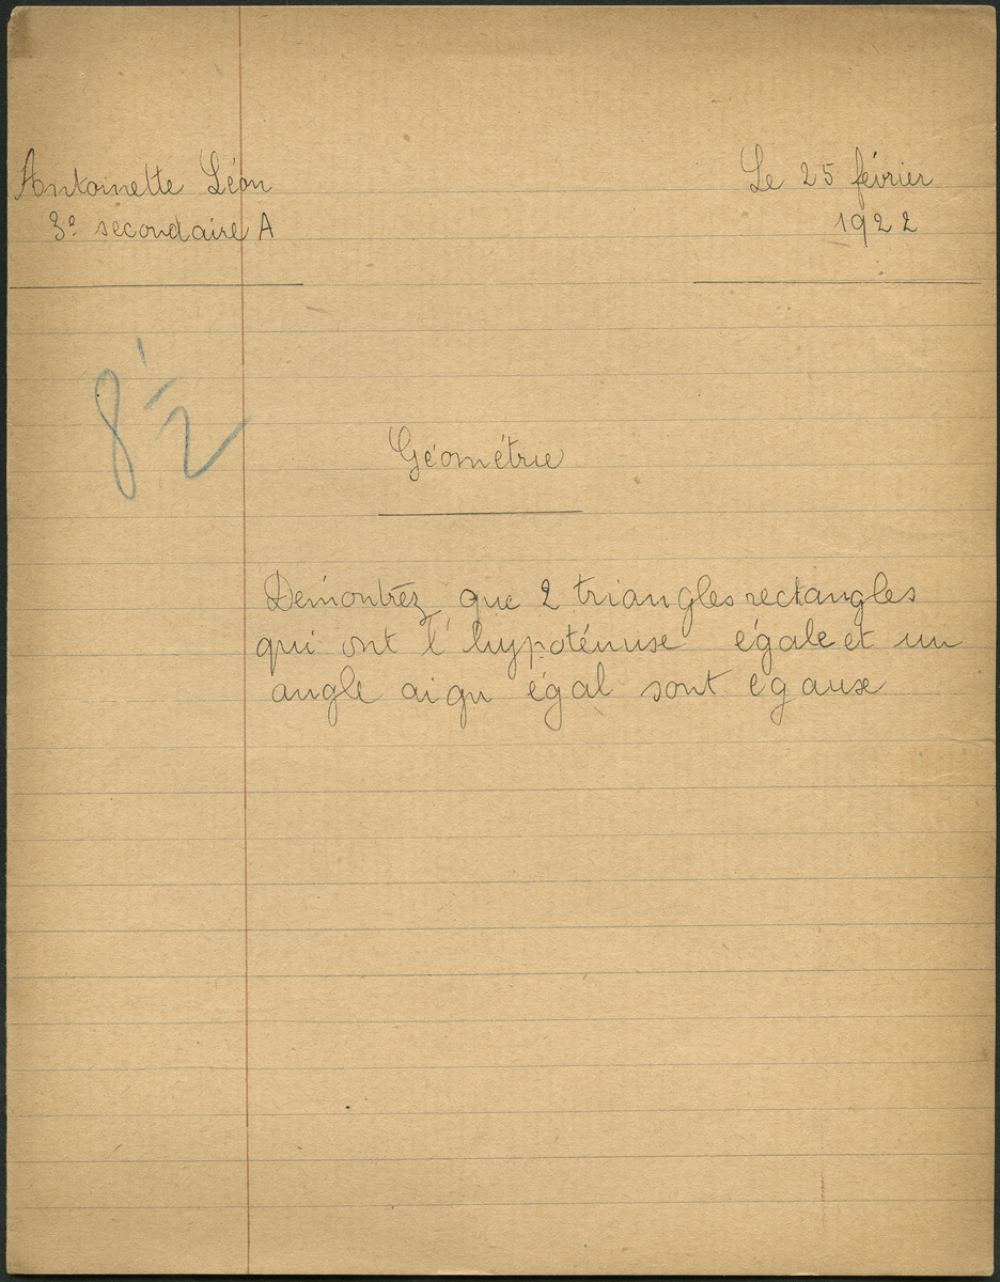 Antoinette Léon
3e secondaire A
Le 25 février
1922
8 1/2
Géométrie
Démontrez que 2 triangles rectangles
qui ont l'hypoténuse égale et un
angle aigu égal sont egaux